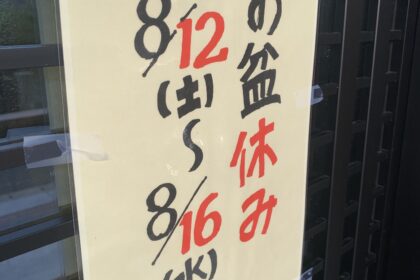 お盆休み
8/12
(土)
〜
8/16
(水)